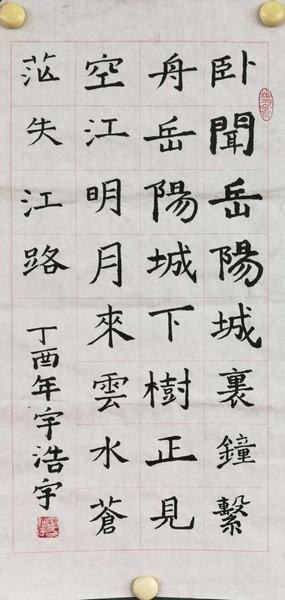 卧聞岳陽城裏鐘繫
舟岳陽城下樹正見
空江明月來雲水蒼
茫失江路
丁酉年宇浩宇